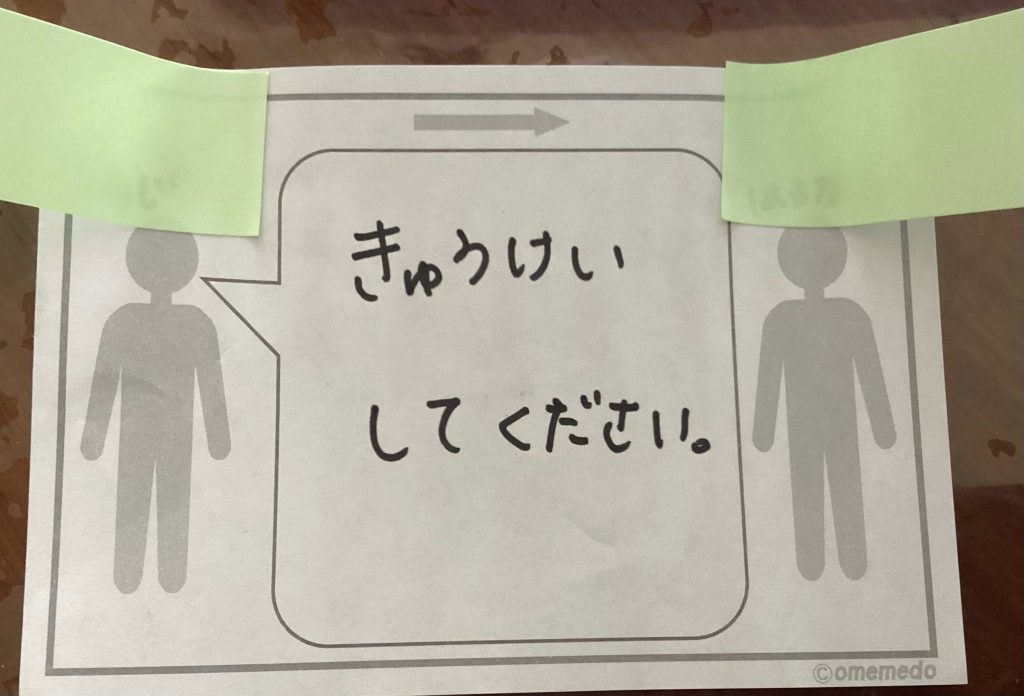 きゅうけい
してください。
©omemedo